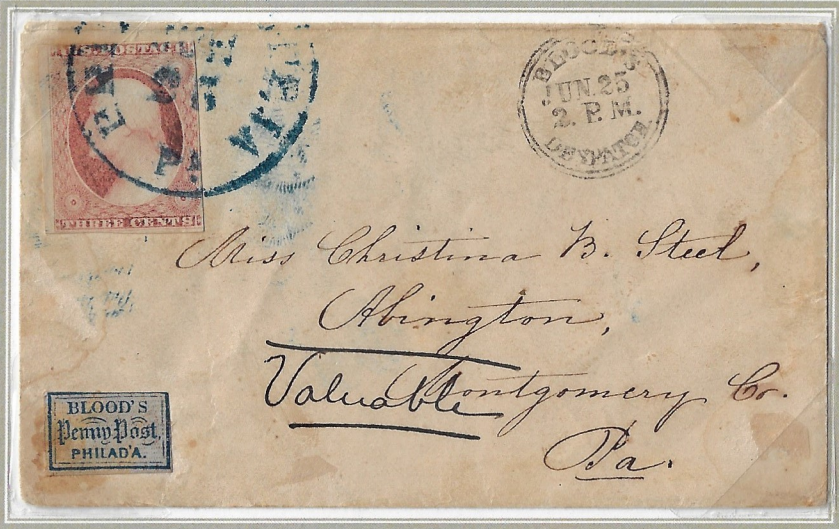 U.S. POSTAGE
THREE CENTS
PA
BLOOD'S
JUN. 25
2. P. M.
DESPATCH
Miss Christina B. Steel,
Abington,
Valuable Montgomery Co.
Pa.
BLOOD'S
Penny Post,
PHILAD'A.